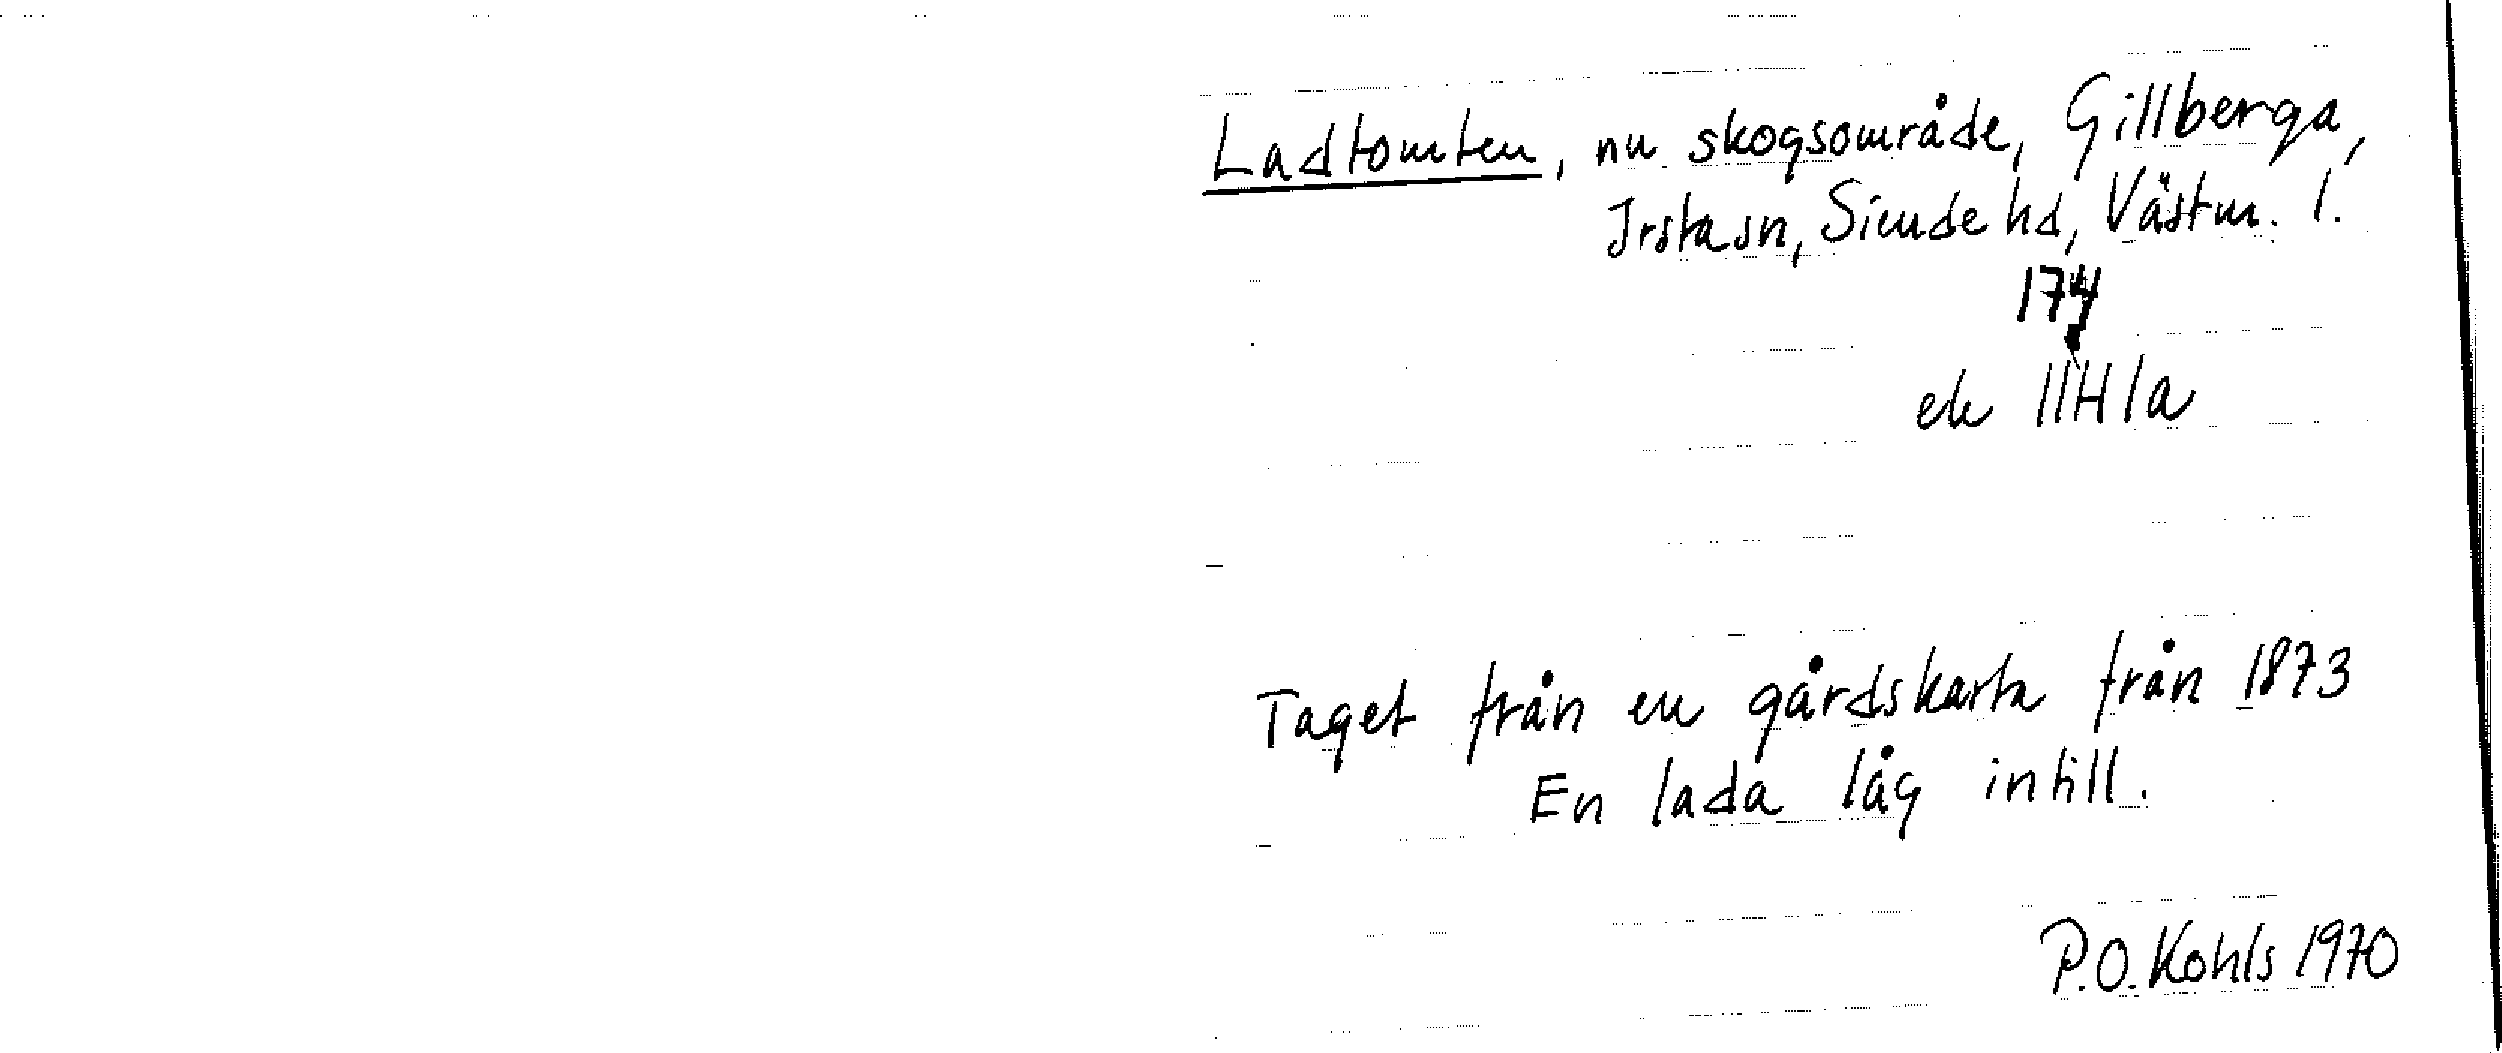 Ladtomten, nu skogsområde, Gillberga,
Irsta sn, Siende hd, Västm. l.
174
ek 11H1a
Taget från en gårdskarta från 1873
En lada låg intill.
P.O. Kohls 1970